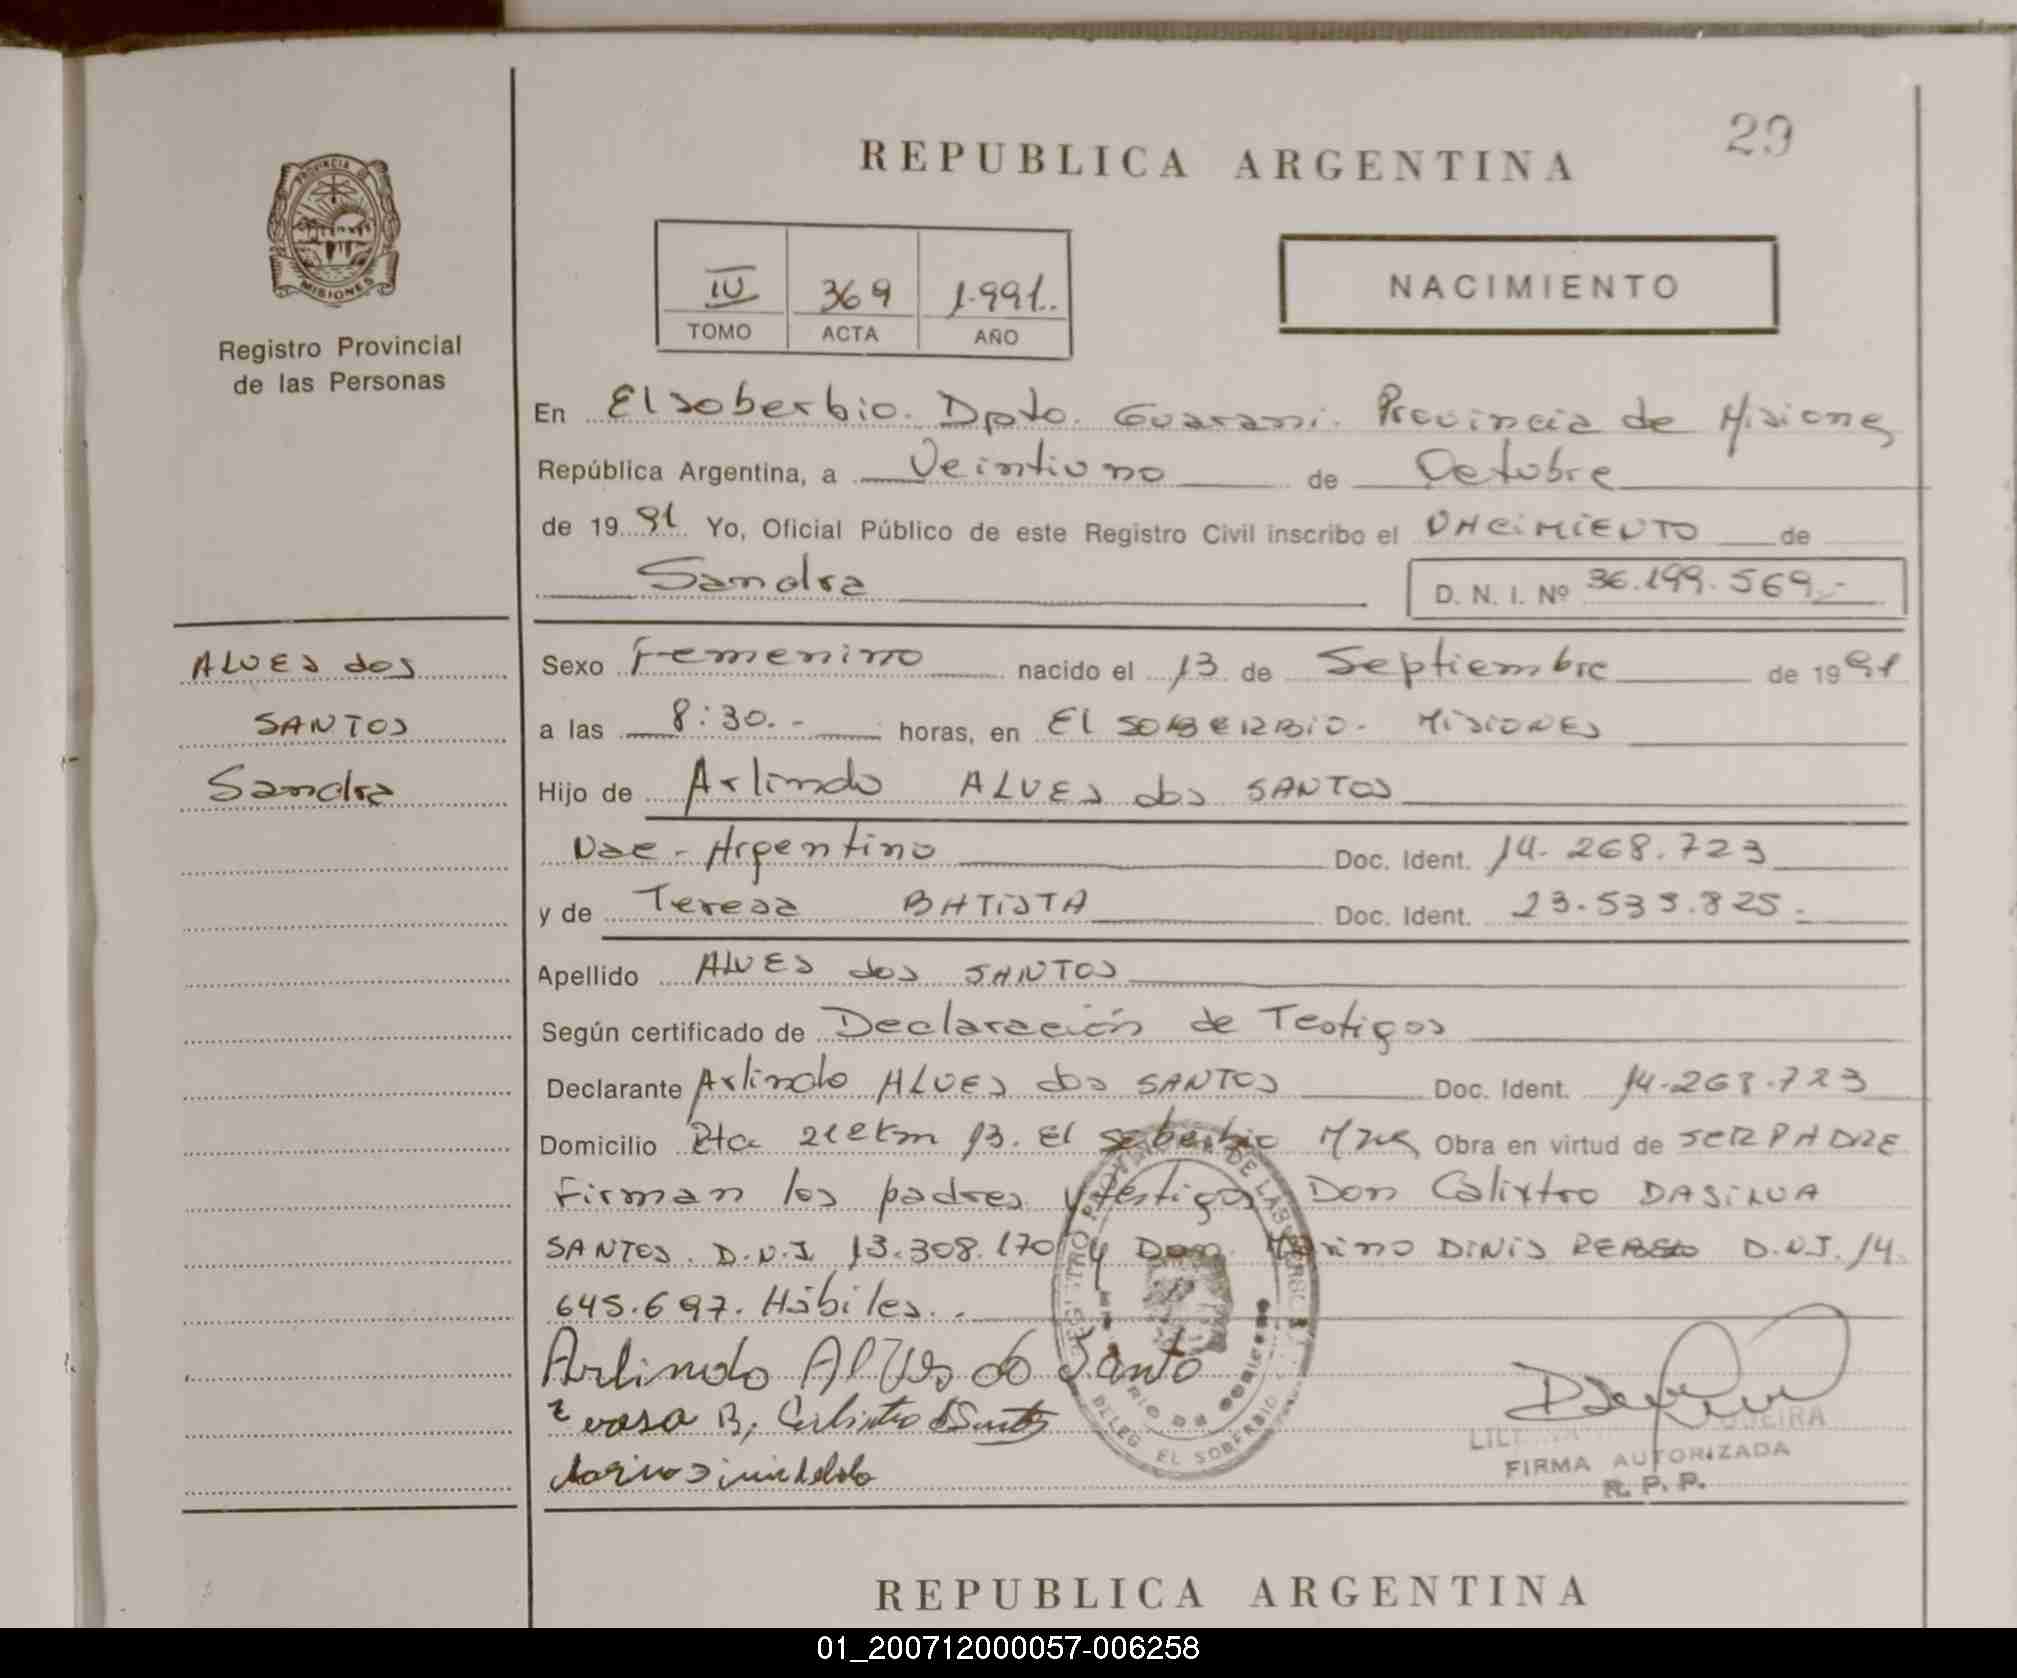 29
REPUBLICA ARGENTINA
PROVINCIA DE
MISIONES
Registro Provincial
de las Personas
IV 369 1.991..
TOMO ACTA AÑO
NACIMIENTO
En El soberbio. Dpto. Guarani. Provincia de Misiones
República Argentina, a Veintiuno de Octubre
de 19 91 Yo, Oficial Público de este Registro Civil inscribo el NACIMIENTO de
Sandra D. N. I. Nº 36.199.569.-
ALVES dos
SANTOS
Sandra
Sexo Femenino nacido el 13 de Septiembre de 19 91
a las 8:30.- horas, en El SOBERBIO - MISIONES
Hijo de Arlindo ALVES dos SANTOS
Nac - Argentino Doc. Ident. 14.268.723
y de Teresa BATISTA Doc. Ident. 23.535.825.-
Apellido ALVES dos SANTOS
Según certificado de Declaración de Testigos
Declarante Arlindo ALVES dos SANTOS Doc. Ident. 14.268.723
Domicilio Rta 212 km 13. El soberbio Mnes Obra en virtud de SER PADRE
Firman los padres y testigos Don Calixtro DASILVA
SANTOS. D.N.I 13.308.170 y Don Marino DINIS REBELO D.N.I. 14.
645.697. Hábiles..
Arlindo Alves do Santo
B,
REGISTRO PROVINCIAL DE LAS PERSONAS
DELEG EL SOBERBIO
FIRMA AUTORIZADA
R. P. P.
REPUBLICA ARGENTINA
01_200712000057-006258